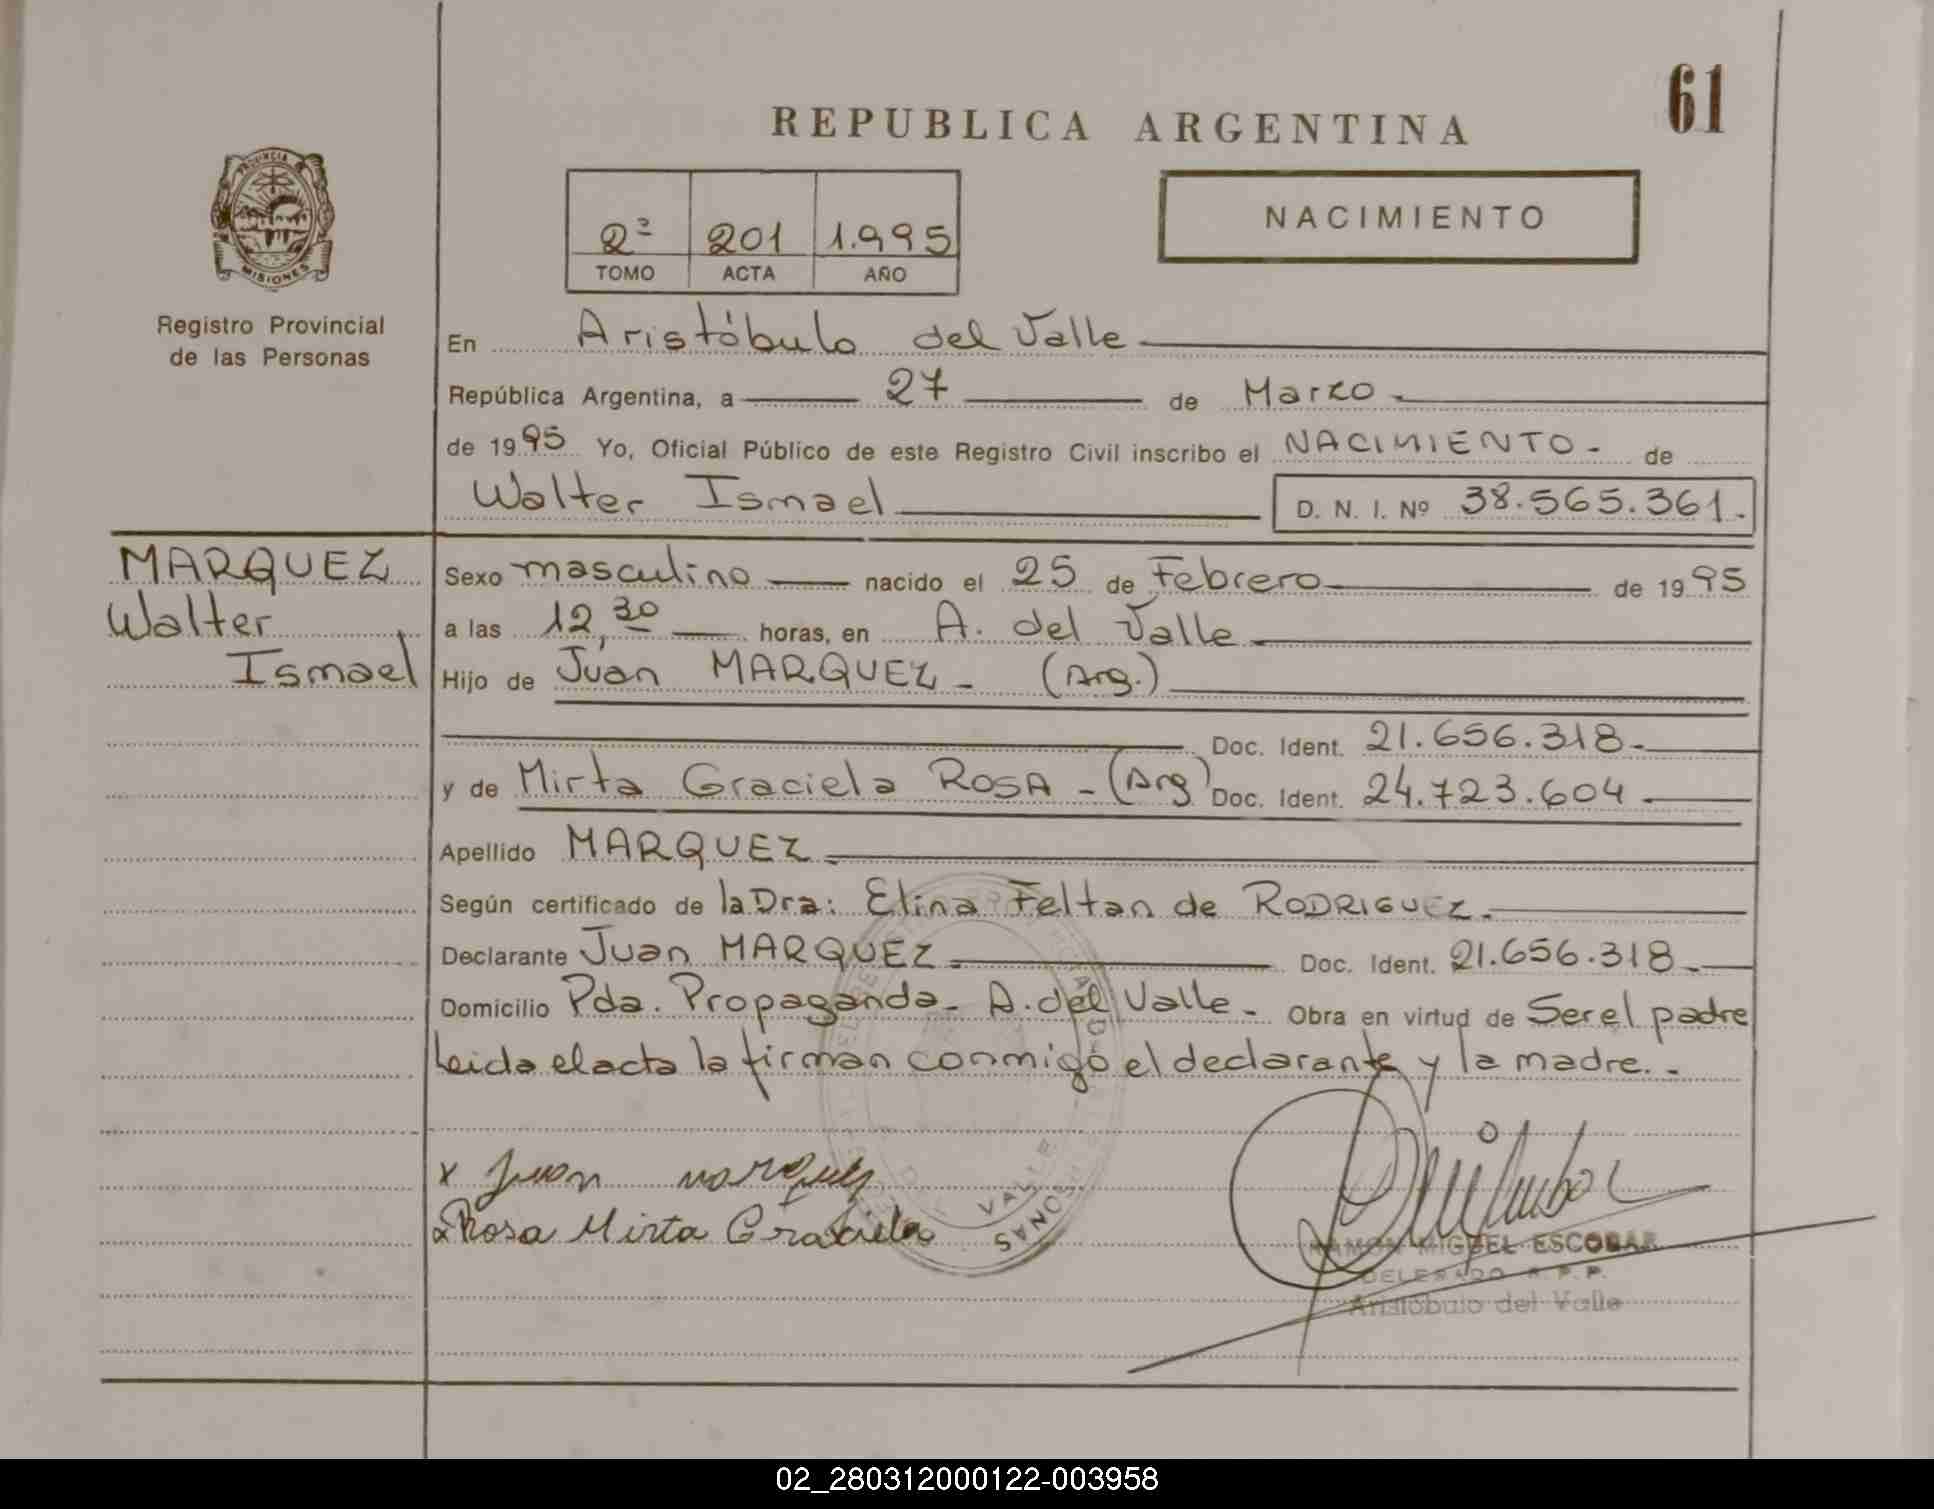 61
REPUBLICA ARGENTINA
PROVINCIA DE
MISIONES
2º 201 1.995
TOMO ACTA AÑO
NACIMIENTO
Registro Provincial
de las Personas
En Aristóbulo del Valle
República Argentina, a 27 de Marzo
de 1995 Yo, Oficial Público de este Registro Civil inscribo el NACIMIENTO - de
Walter Ismael D. N. I. Nº 38.565.361.
MARQUEZ
Walter
Ismael
Sexo masculino nacido el 25 de Febrero de 1995
a las 12,30 horas, en A. del Valle
Hijo de Juan MARQUEZ - (Arg.)
Doc. Ident. 21.656.318-
y de Mirta Graciela ROSA - (Arg) Doc. Ident. 24.723.604
Apellido MARQUEZ
Según certificado de la Dra: Elina Feltan de RODRIGUEZ.
Declarante Juan MARQUEZ Doc. Ident. 21.656.318
Domicilio Pda. Propaganda - A. del Valle - Obra en virtud de Ser el padre
Leida el acta la firman conmigo el declarante y la madre. -
x Juan marquez
x Rosa Mirta Graciela
VALLE
RAMON MIGUEL ESCOBAR
DELEGADO R.P.P.
Aristóbulo del Valle
02_280312000122-003958